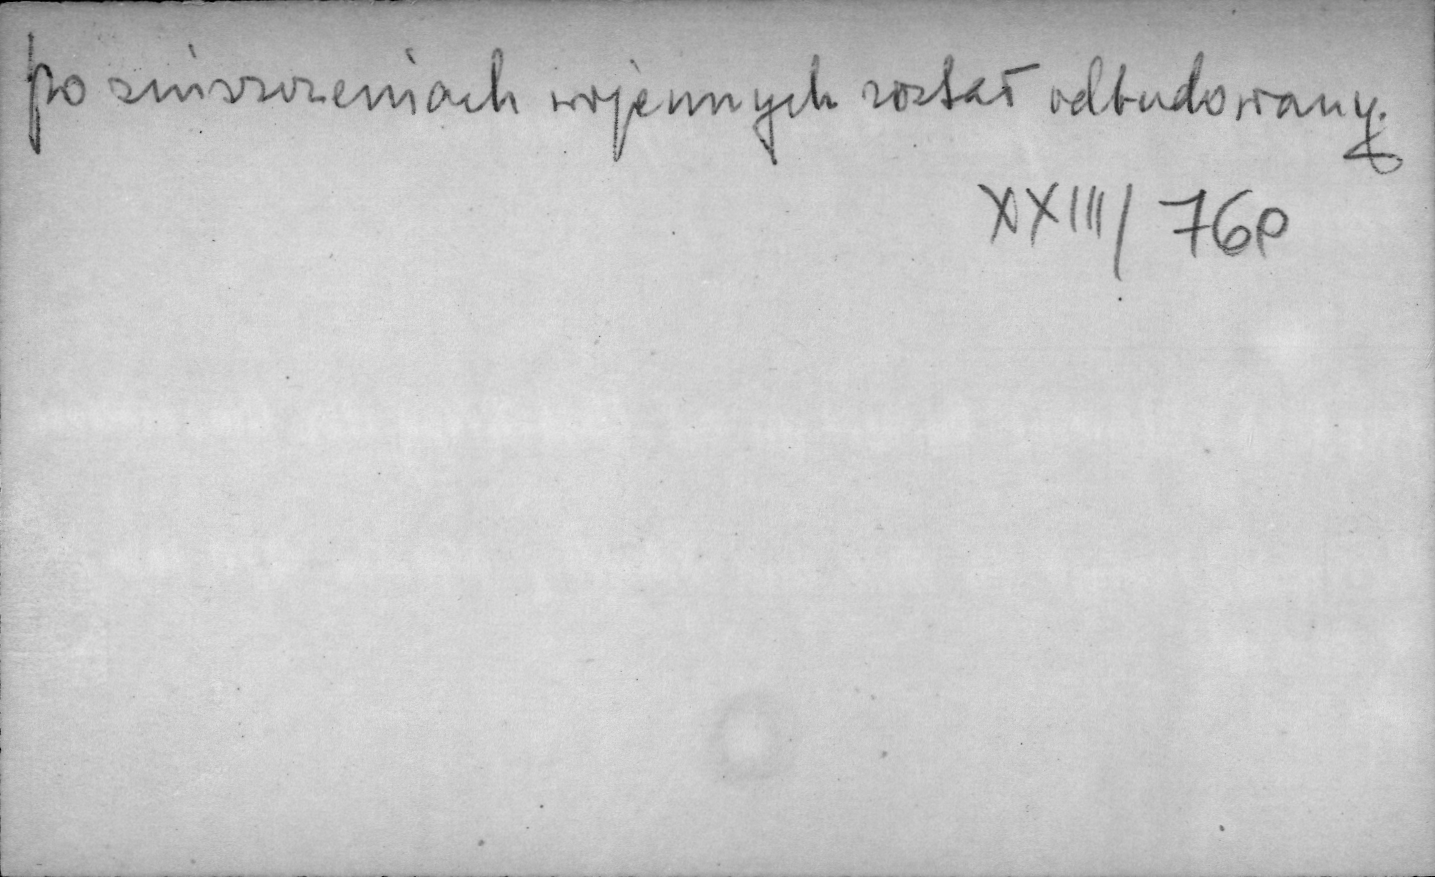 po zniszczeniach wojennych został odbudowany.
XXIII/760